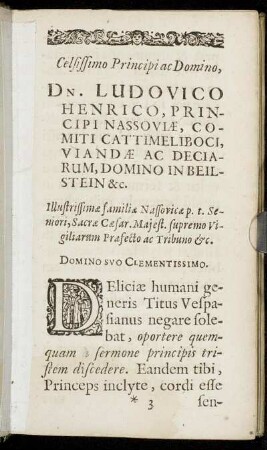 Celsissimo Principi ac Domino,
DN. LUDOVICO
HENRICO, PRIN-
CIPI NASSOVIÆ, CO-
MITI CATTIMELIBOCI,
VIANDÆ AC DECIA-
RUM, DOMINO IN BEIL-
STEIN &c.
Illustrissimæ familiæ Nassovicæ p. t. Se-
niori, Sacræ Cæsar. Majest. supremo Vi-
giliarum Præfecto ac Tribuno &c.
DOMINO SVO CLEMENTISSIMO.
DEliciæ humani ge-
neris Titus Vespa-
sianus negare sole-
bat, oportere quem-
quam à sermone principis tri-
stem discedere. Eandem tibi,
Princeps inclyte, cordi esse
* 3 sen-